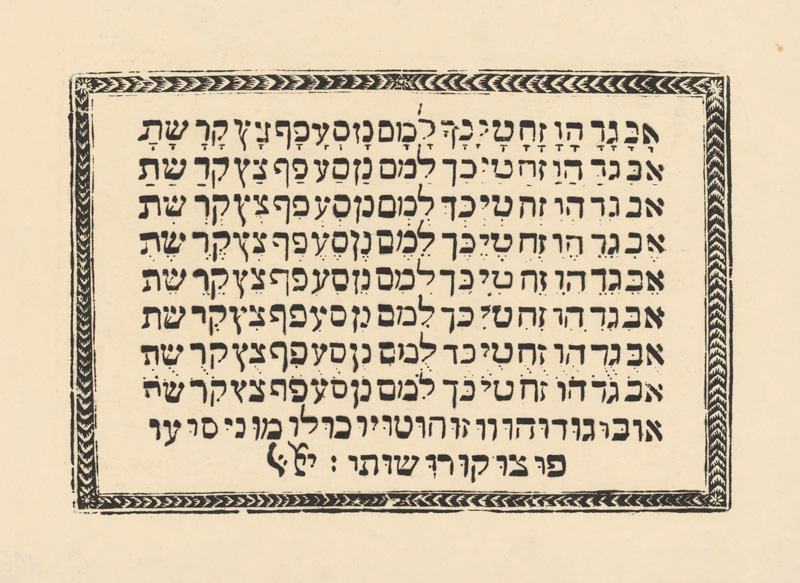 אב גד הו זח טי כך למם נן סע פף צץ קר שת
אב גד הו זח טי כך למם נן סע פף צץ קר שת
אב גד הו זח טי כך למם נן סע פף צץ קר שת
אב גד הו זח טי כך למם נן סע פף צץ קר שת
אב גד הו זח טי כך למם נן סע פף צץ קר שת
אב גד הו זח טי כך למם נן סע פף צץ קר שת
אב גד הו זח טי כך למם נן סע פף צץ קר שת
אב גד הו זח טי כך למם נן סע פף צץ קר שת
אובוגודוהווו זוחוטויו כולו מו נו סו עו
פו צו קורו שותו :